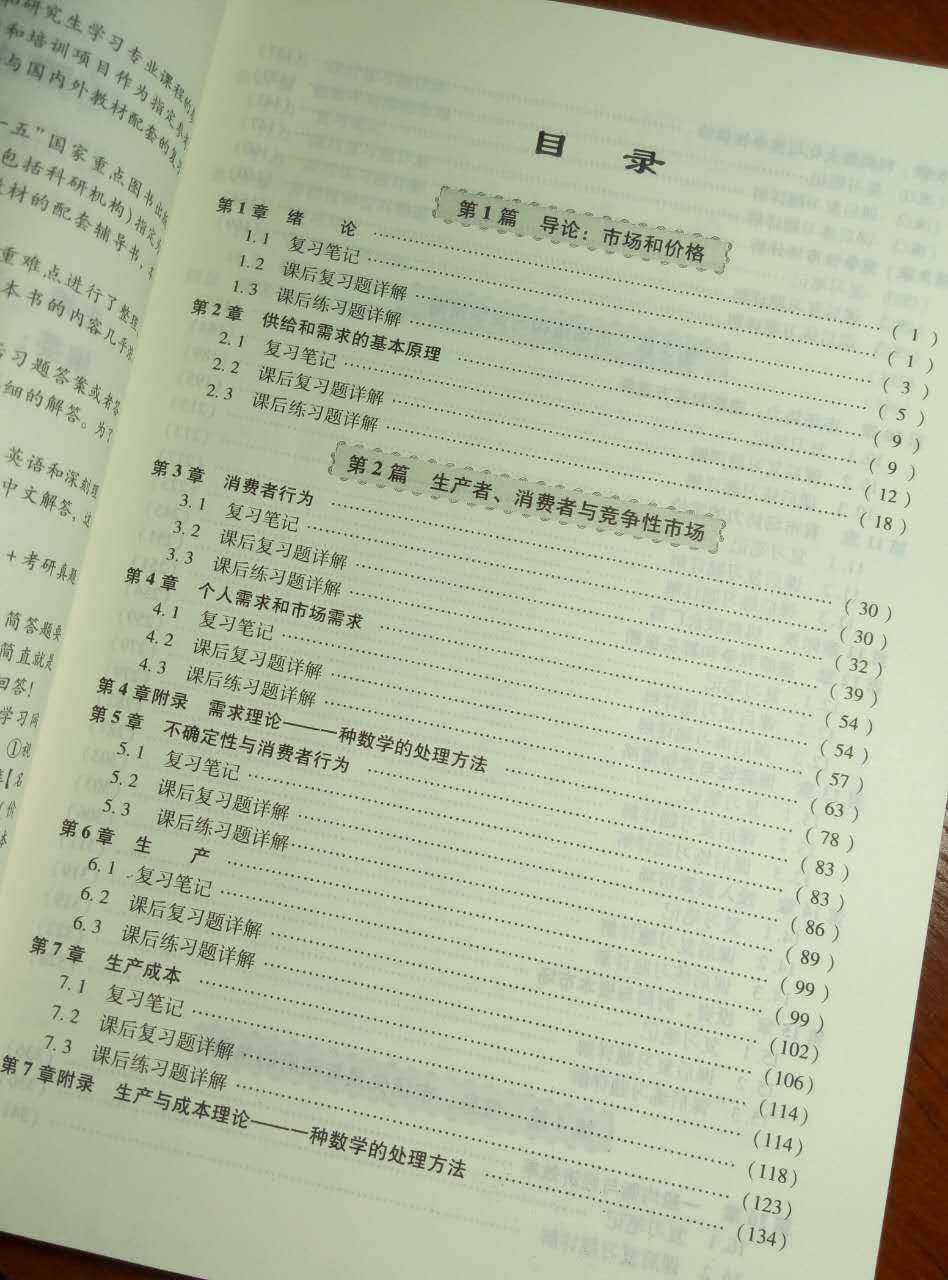 和研究生学习专业课程的
和培训项目作为指定参
与国内外教材配套的复
五”国家重点图书出
包括科研机构)指定为
教材的配套辅导书，
重难点进行了整理
本书的内容几乎
习题答案或者
细的解答。为
英语和深刻理
中文解答，这
+考研真题
简答题要
简直就是
回答！
学习网
①
【名
（价
本
目 录
第1篇 导论：市场和价格
第1章 绪 论 ……（1）
1.1 复习笔记 ……（1）
1.2 课后复习题详解 ……（3）
1.3 课后练习题详解 ……（5）
第2章 供给和需求的基本原理 ……（9）
2.1 复习笔记 ……（9）
2.2 课后复习题详解 ……（12）
2.3 课后练习题详解 ……（18）
第2篇 生产者、消费者与竞争性市场
第3章 消费者行为 ……（30）
3.1 复习笔记 ……（30）
3.2 课后复习题详解 ……（32）
3.3 课后练习题详解 ……（39）
第4章 个人需求和市场需求 ……（54）
4.1 复习笔记 ……（54）
4.2 课后复习题详解 ……（57）
4.3 课后练习题详解 ……（63）
第4章附录 需求理论——一种数学的处理方法 ……（78）
第5章 不确定性与消费者行为 ……（83）
5.1 复习笔记 ……（83）
5.2 课后复习题详解 ……（86）
5.3 课后练习题详解 ……（89）
第6章 生 产 ……（99）
6.1 复习笔记 ……（99）
6.2 课后复习题详解 ……（102）
6.3 课后练习题详解 ……（106）
第7章 生产成本 ……（114）
7.1 复习笔记 ……（114）
7.2 课后复习题详解 ……（118）
7.3 课后练习题详解 ……（123）
第7章附录 生产与成本理论——一种数学的处理方法 ……（134）